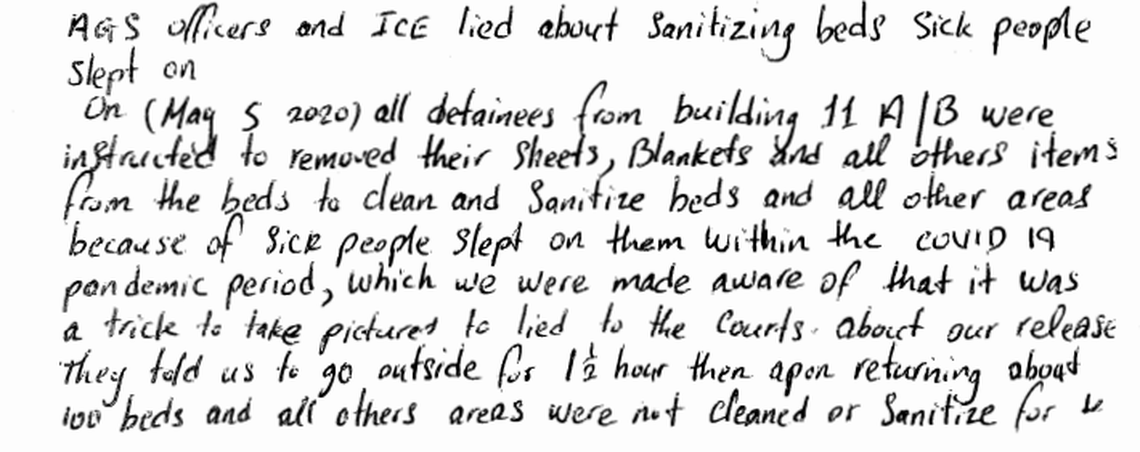 AGS officers and ICE lied about Sanitizing beds Sick people
Slept on
On (May 5 2020) all detainees from building 11 A/B were
instructed to removed their Sheets, Blankets and all others items
from the beds to clean and Sanitize beds and all other areas
because of Sick people Slept on them within the COVID 19
pandemic period, which we were made aware of that it was
a trick to take pictures to lied to the Courts about our release
They told us to go outside for 1½ hour then apon returning about
100 beds and all others areas were not cleaned or Sanitize for